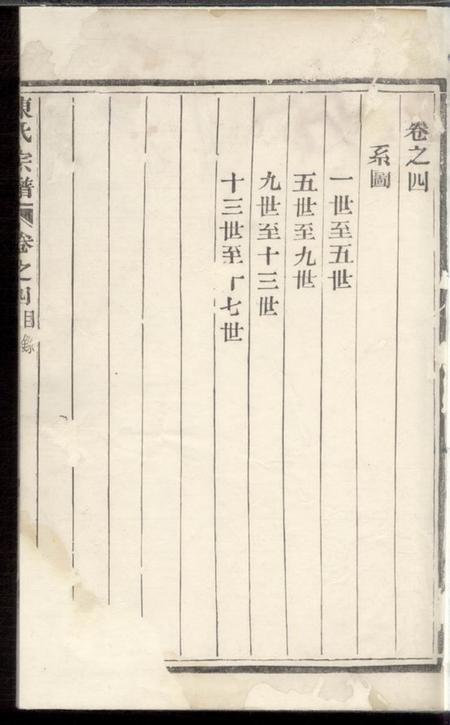 卷之四
系圖
一世至五世
五世至九世
九世至十三世
十三世至十七世
陳氏宗譜 卷之四目錄